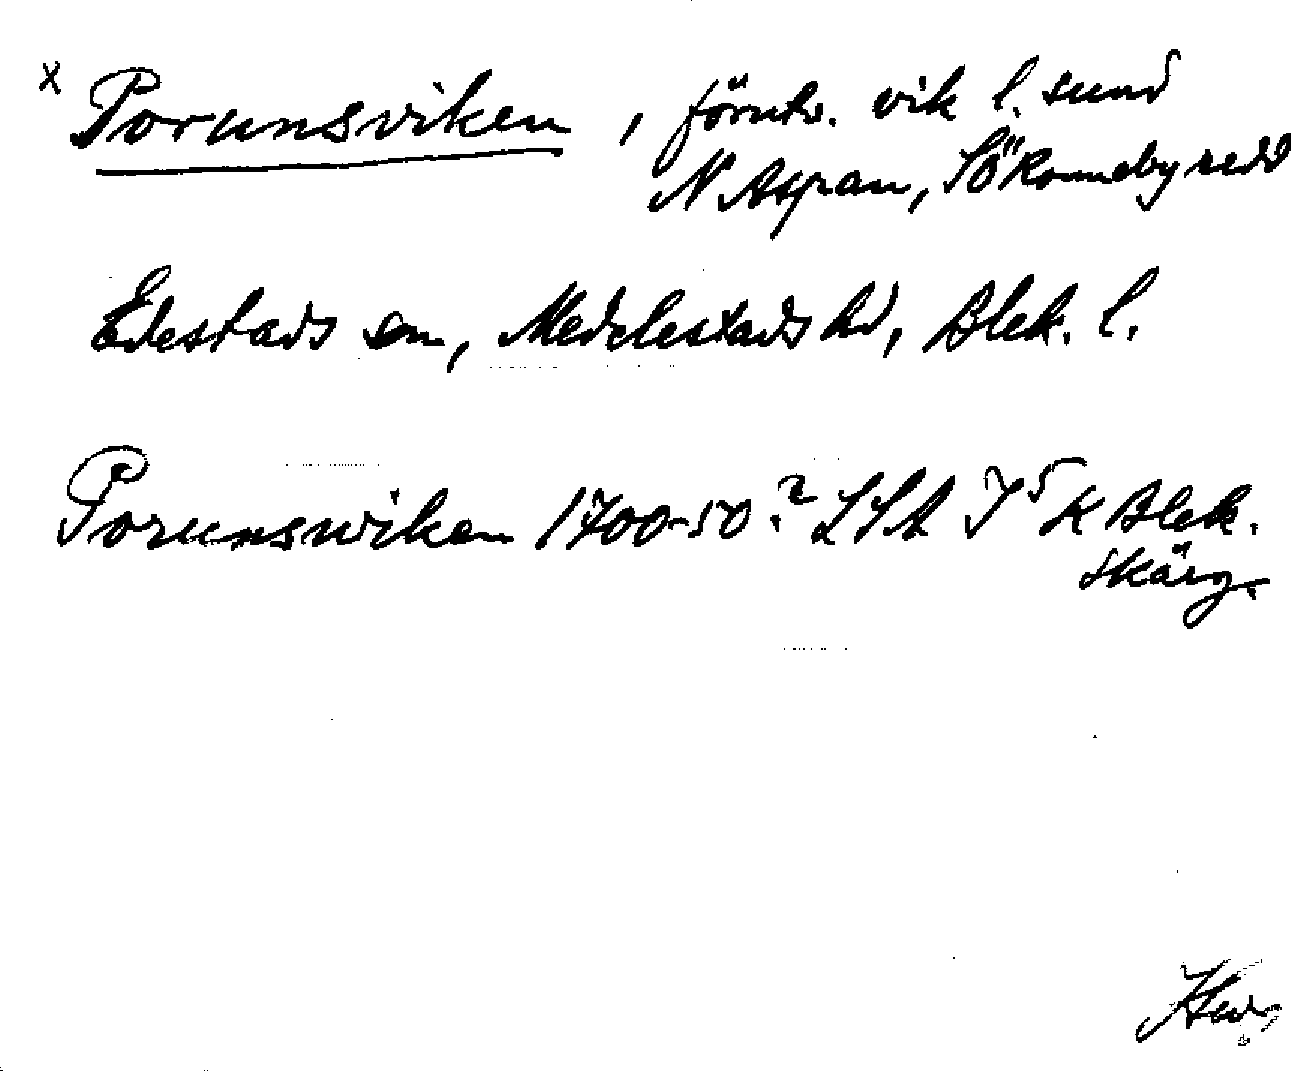 x Porunsviken, förutv. vik l. sund
N Aspan, SÖ Ronneby redd
Edestads sn, Medelstads hd, Blek. l.
Porunswiken 1700-50? LSA J⁵ K Blek.
skärg.